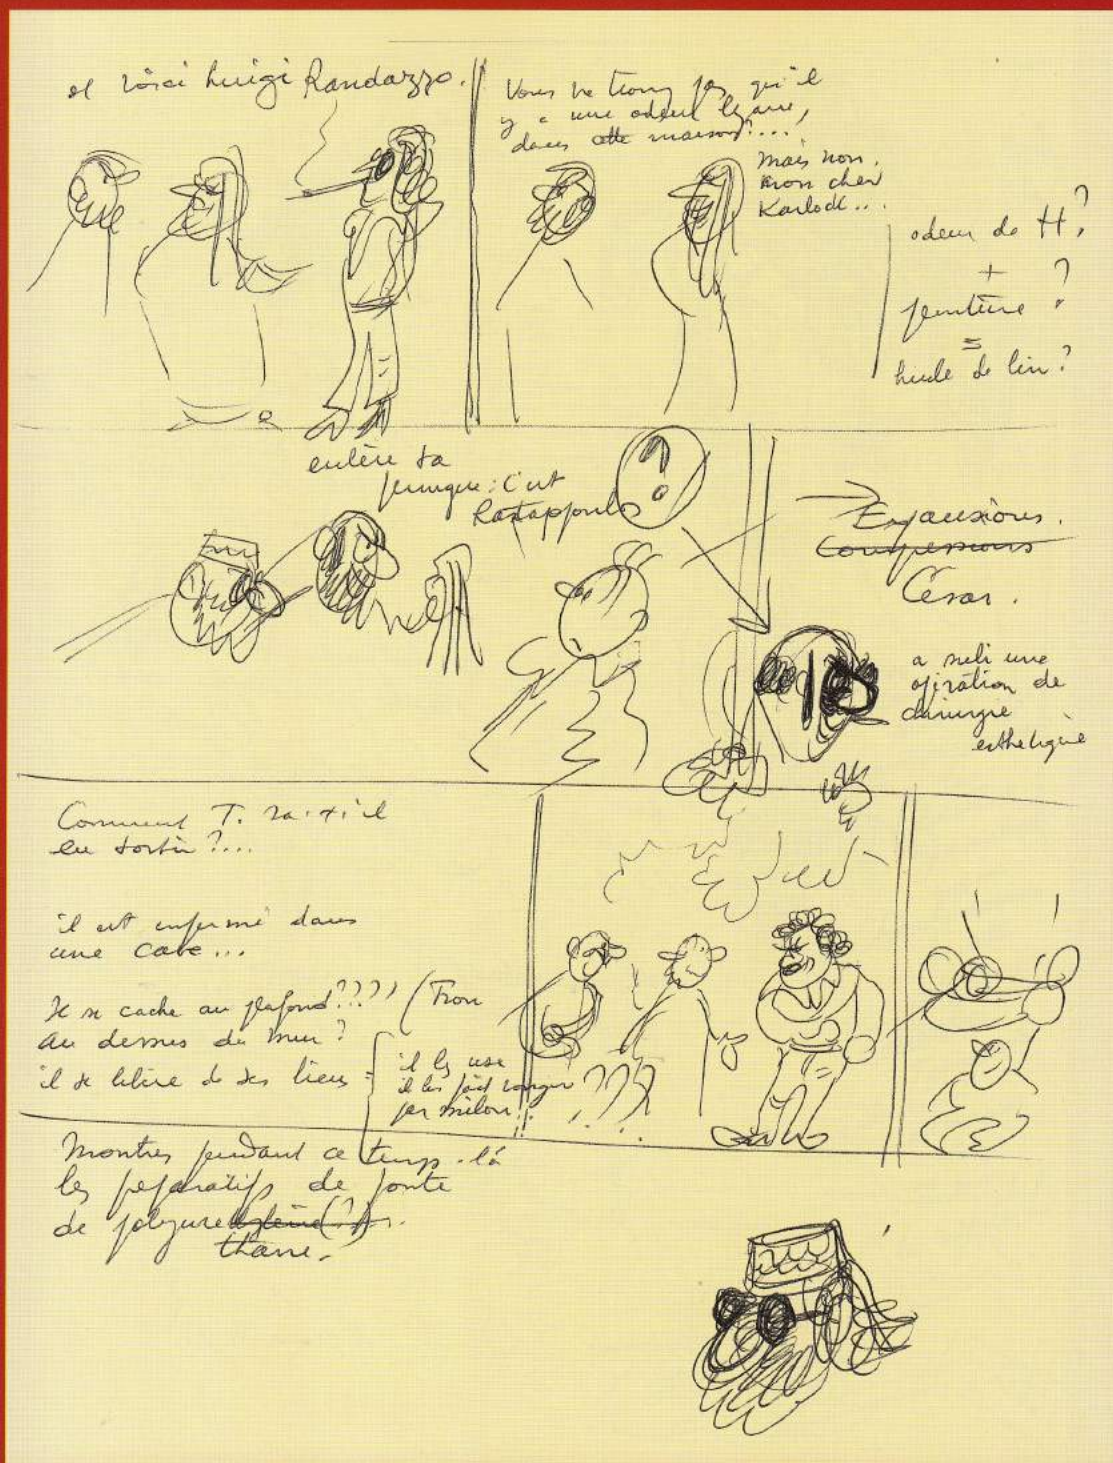 et voici Luigi Randazzo.
Vous ne trouvez pas qu'il
y a une odeur bizarre,
dans cette maison?....
Mais non,
mon cher
Karlock...
odeur de H?
+
peinture?
=
huile de lin?
enlève sa
perruque: c'est
Rastapopoulos
?
Expansions.
Compressions
César.
a subi une
opération de
chirurgie
esthétique
Comment T. va-t-il
en sortir?...
il est enfermé dans
une cave...
Il se cache au plafond???? (Trou
au dessus du mur?
il se libère de ses liens =
il les use
il les fait ronger
par milou!.
????
Montrer pendant ce temps-là
les préparatifs de fonte
de polyure (?).
thane.